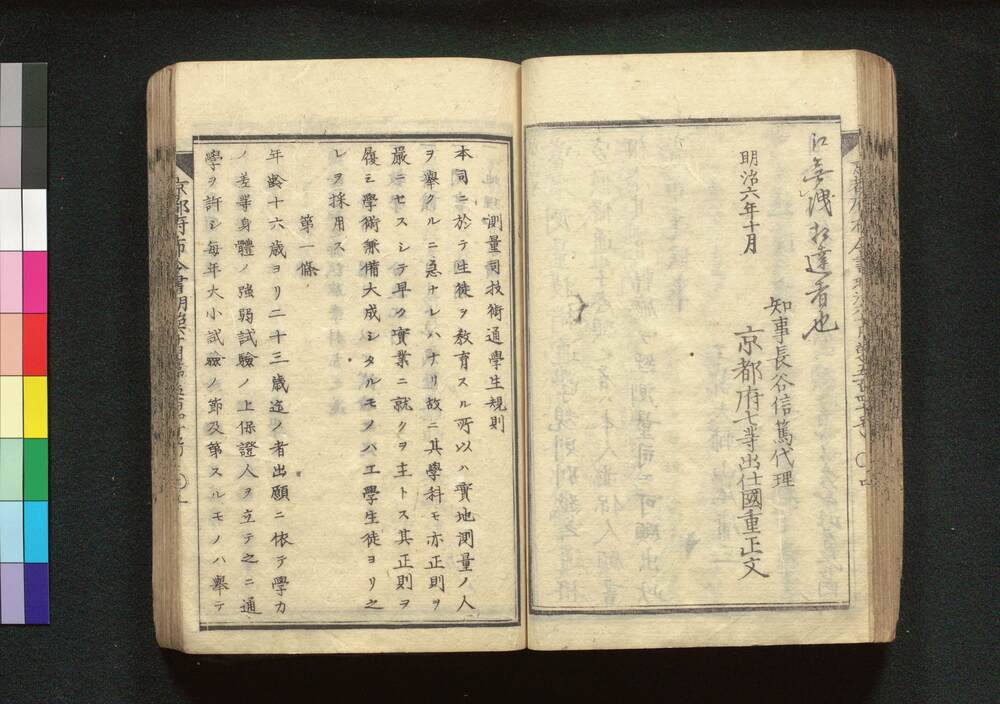 江無洩相達者也
明治六年十月
知事長谷信篤代理
京都府七等出仕國重正文
測量司技術通學生規則
本司ニ於テ生徒ヲ教育スル所以ハ實地測量ノ人
ヲ舉クルニ急ナレハナリ故ニ其學科モ亦正則ヲ
嚴ニセスシテ早ク實業ニ就クヲ主トス其正則ヲ
履ミ學術兼備大成シタルモノハ工學生徒ヨリ之
レヲ採用ス
第一條
年齡十六歳ヨリ二十三歳迄ノ者出願ニ依テ學力
ノ差等身體ノ強弱試驗ノ上保證人ヲ立テ之ニ通
學ヲ許シ毎年大小試驗ノ節及第スルモノハ舉テ
京都府布令書明治六年